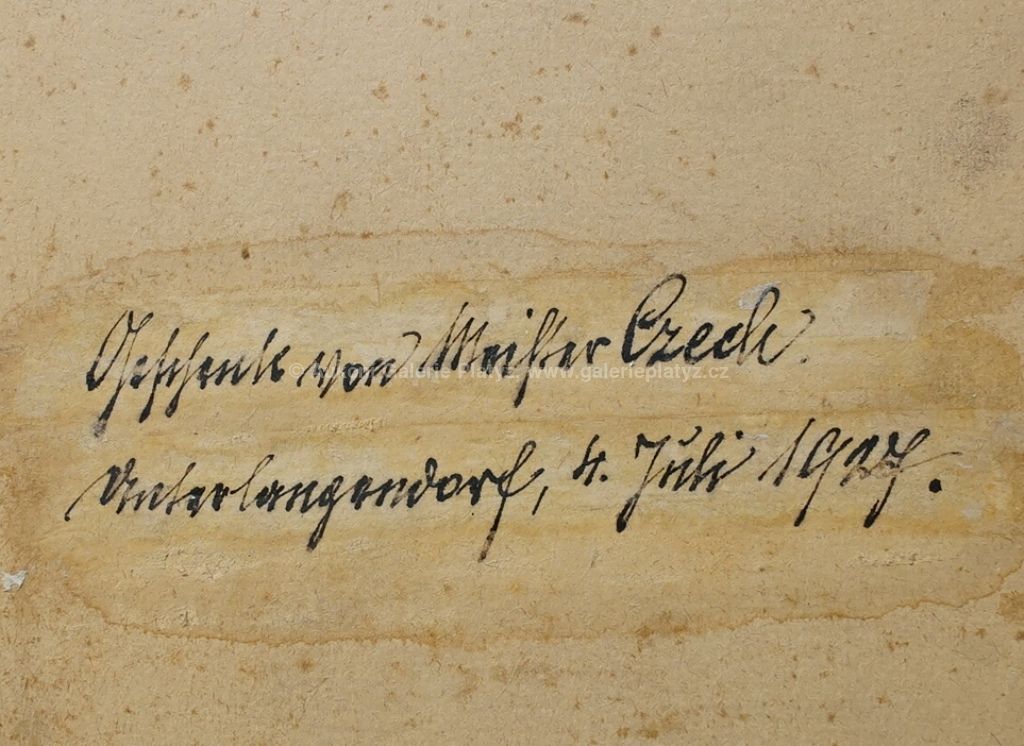 Geschenk von Meister Czech.
© Galerie Platýz, www.galerieplatyz.cz
Unterlangendorf, 4. Juli 1927.